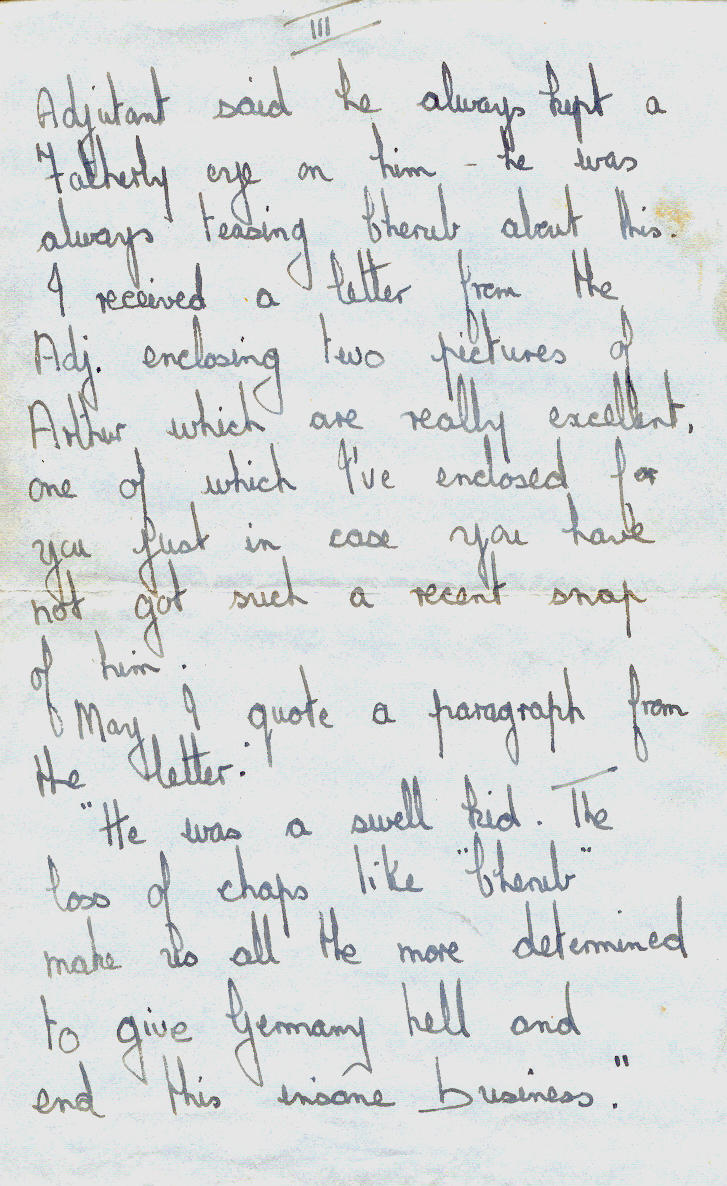 III
Adjutant said he always kept a
Fatherly eye on him - he was
always teasing Cherub about this.
I received a letter from the
Adj. enclosing two pictures of
Arthur which are really excellent,
one of which I've enclosed for
you just in case you have
not got such a recent snap
of him.
May I quote a paragraph from
the letter.
"He was a swell kid. The
loss of chaps like "Cherub"
make us all the more determined
to give Germany hell and
end this insane business."